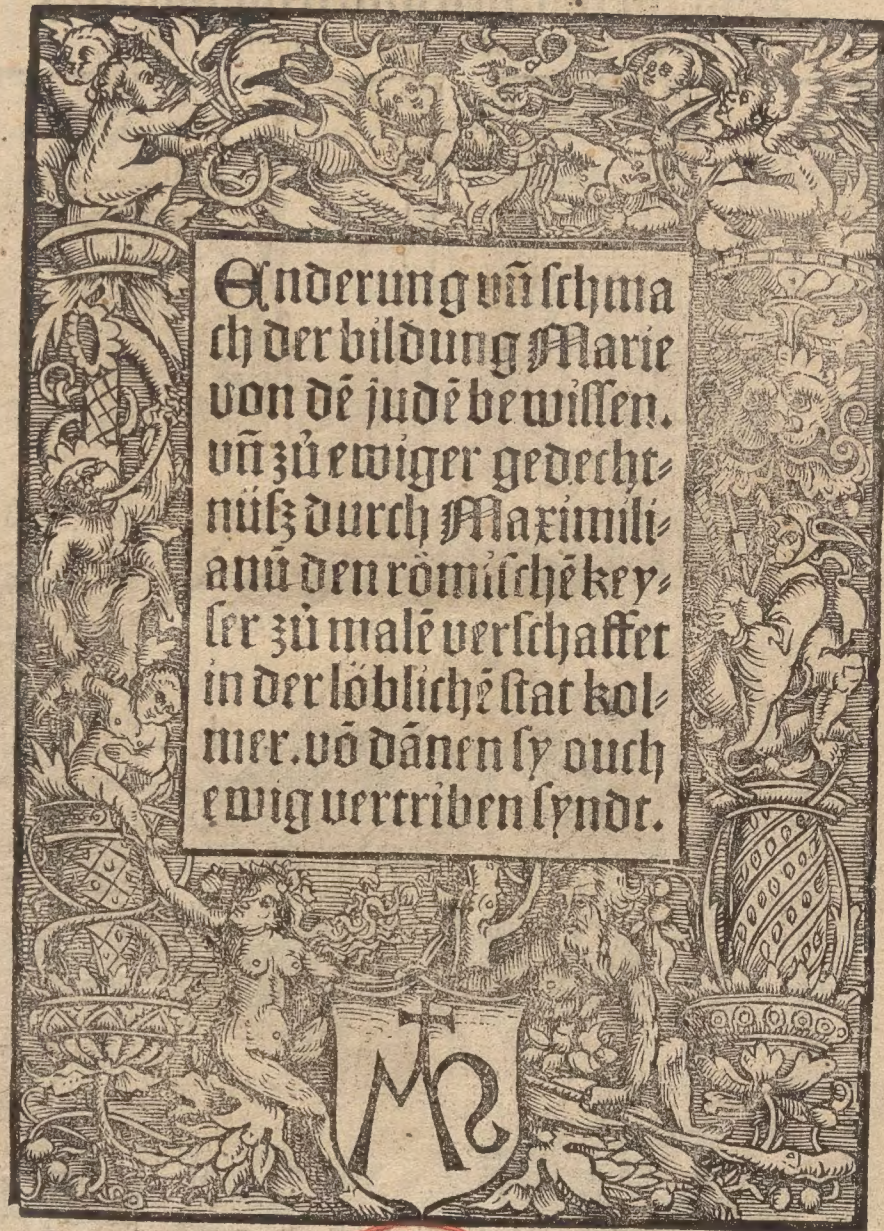 Enderung vñ schma
ch der bildung Marie
von dē judē bewissen.
vñ zů ewiger gedecht⸗
nüſz durch Maximili⸗
anū den römischē key⸗
ser zů malē verschaffet
in der löblichē stat kol⸗
mer. vō dānen sy ouch
ewig vertriben syndt.